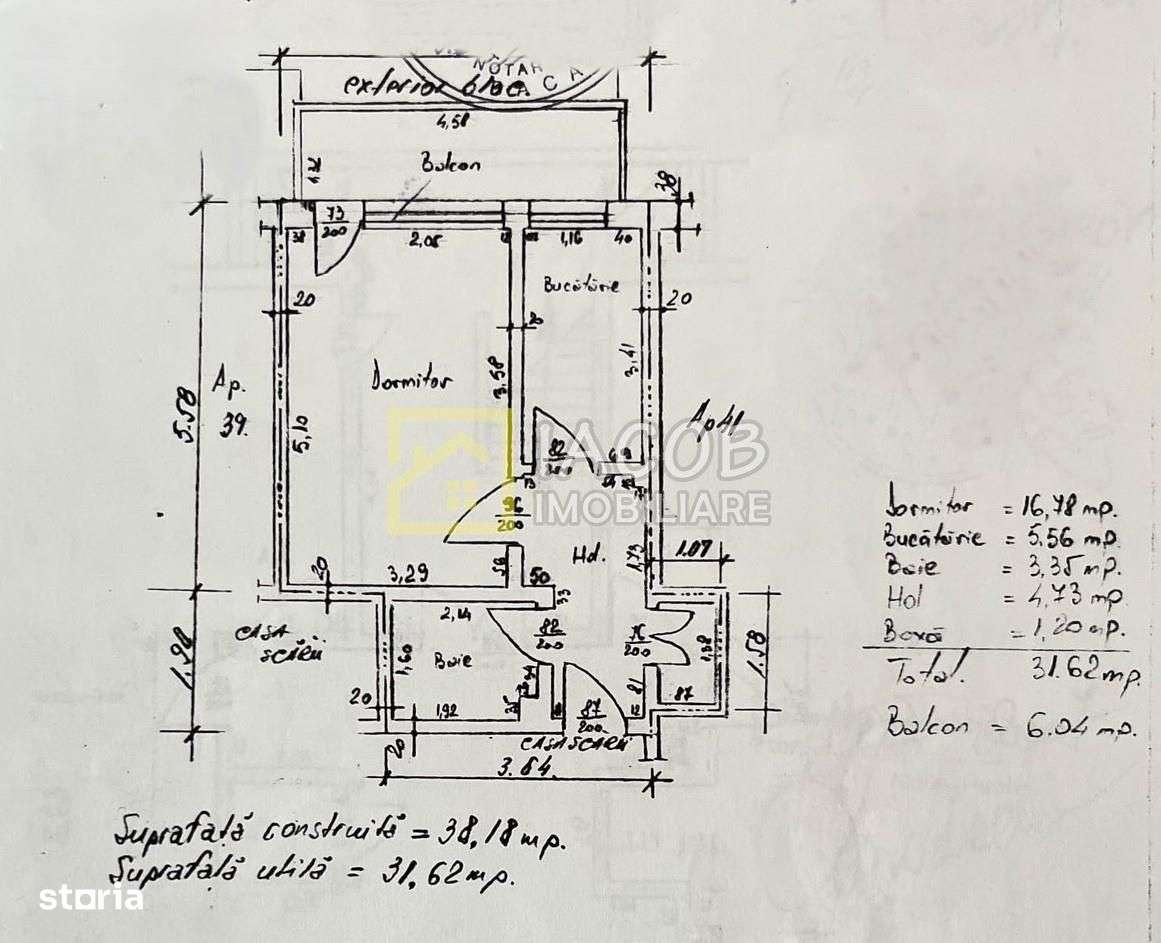 NOTAR
A C A
exterior bloc
4,58
Balcon
38
73
200
38
2,05
1,16
40
Bucătărie
20
20
20
3,41
3,58
Dormitor
Ap.
39.
5,58
5,10
Ap 41
IACOB
IMOBILIARE
82
96
200
Hol.
1,73
1.07
20
3,29
56
50
33
2,14
CASA
SCĂRII
82
200
76
200
1,38
1.58
1,60
Baie
1.98
20
1,92
87
200
81
12
87
20
CASA SCĂRII
3.64.
Dormitor = 16,78 mp.
Bucătărie = 5,56 mp.
Baie = 3,35 mp.
Hol = 4,73 mp.
Boxă = 1,20 mp.
Total. 31.62 mp.
Balcon = 6.04 mp.
Suprafață construită = 38,18 mp.
Suprafață utilă = 31,62 mp.
storia